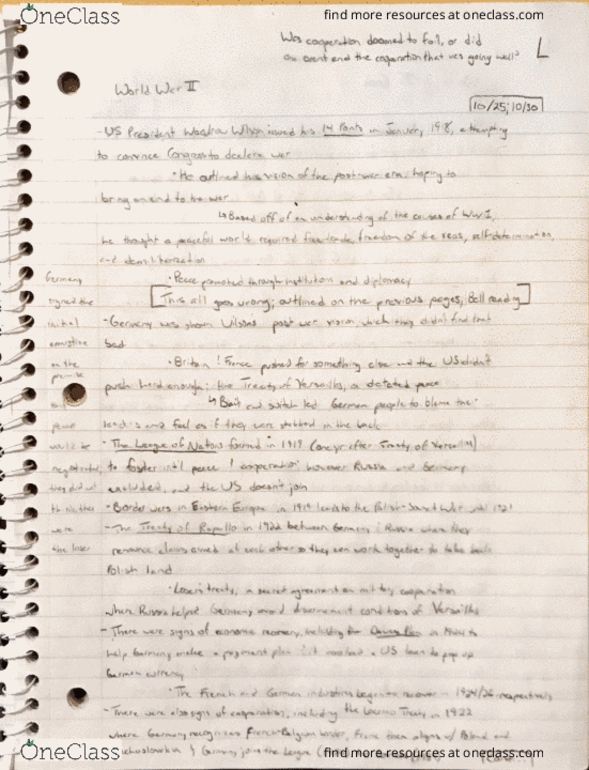 OneClass
find more resources at oneclass.com
Was cooperation doomed to fail, or did
an event end the cooperation that was going well?
L
World War II
10/25; 10/30
- US President Woodrow Wilson issued his 14 Points in January, 1918, attempting
to convince Congress to declare war
• He outlined his vision of the post-war era, hoping to
bring an end to the war
↳ Based off of an understanding of the causes of WWI,
he thought a peaceful world required free trade, freedom of the seas, self-determination,
and demilitarization
• Peace promoted through institutions and diplomacy
[This all goes wrong; outlined on the previous pages; Bell reading]
- Germany was shown Wilsons post war vision, which they didn't find that
bad
• Britain & France pushed for something else and the US didn't
push hard enough; the Treaty of Versailles, a dictated peace
↳ Bait and switch led German people to blame their
leaders and feel as if they were stabbed in the back
- The League of Nations formed in 1919 (one yr after Treaty of Versailles)
to foster int'l peace & cooperation however Russia and Germany
excluded, and the US doesn't join
- Border wars in Eastern Europe in 1919 leads to the Polish-Soviet War until 1921
- The Treaty of Rapallo in 1922 between Germany & Russia when they
renounce claims aimed at each other so they can work together to take back
Polish land
• Losers treaty, a secret agreement on military cooperation
where Russia helped Germany avoid disarmament conditions of Versailles
- There were signs of economic recovery, including the Dawes Plan in
help Germany make a payment plan it received a US loan to prop up
German currency
• The French and German industries began to recover in 1924/26 respectively
- There were also signs of cooperation, including the Locarno Treaty in
where Germany recognizes French-Belgium border, France then aligns w/ Poland and
Germany joins the League
Germany
signed the
initial
armistice
on the
premise
that
peace
would be
negotiated,
they did not
think they
were
the loser
OneClass
find more resources at oneclass.com